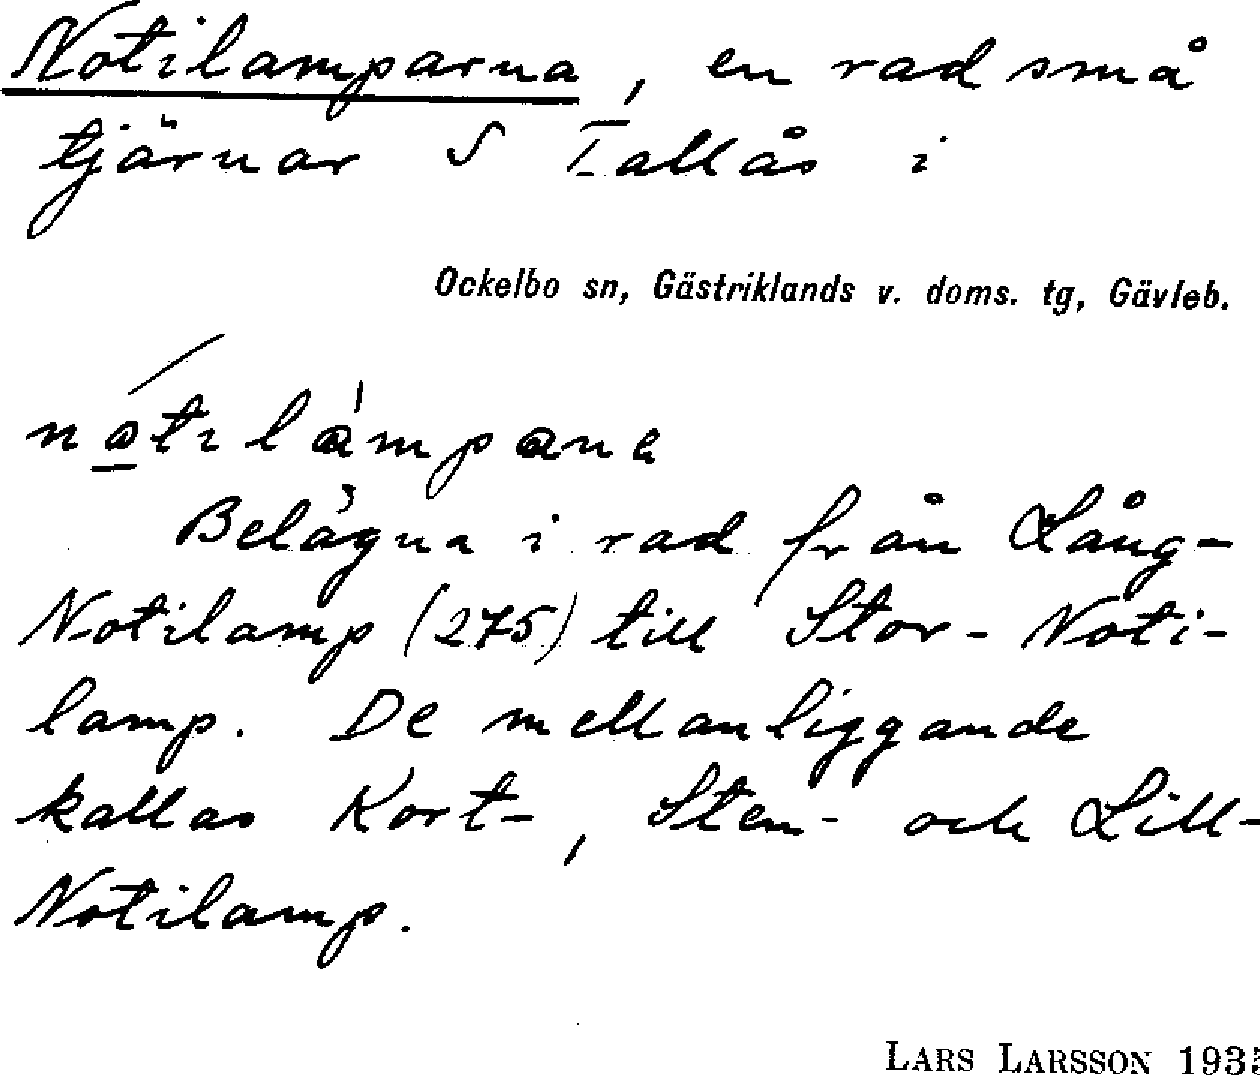 Notilamparna, en rad små
tjärnar S Tallås i
Ockelbo sn, Gästriklands v. doms. tg, Gävleb.
nòtilámpana
Belägna i rad från Lång-
Notilamp (275) till Stor-Noti-
lamp. De mellanliggande
kallas Kort-, Sten- och Lill-
Notilamp.
LARS LARSSON 1935